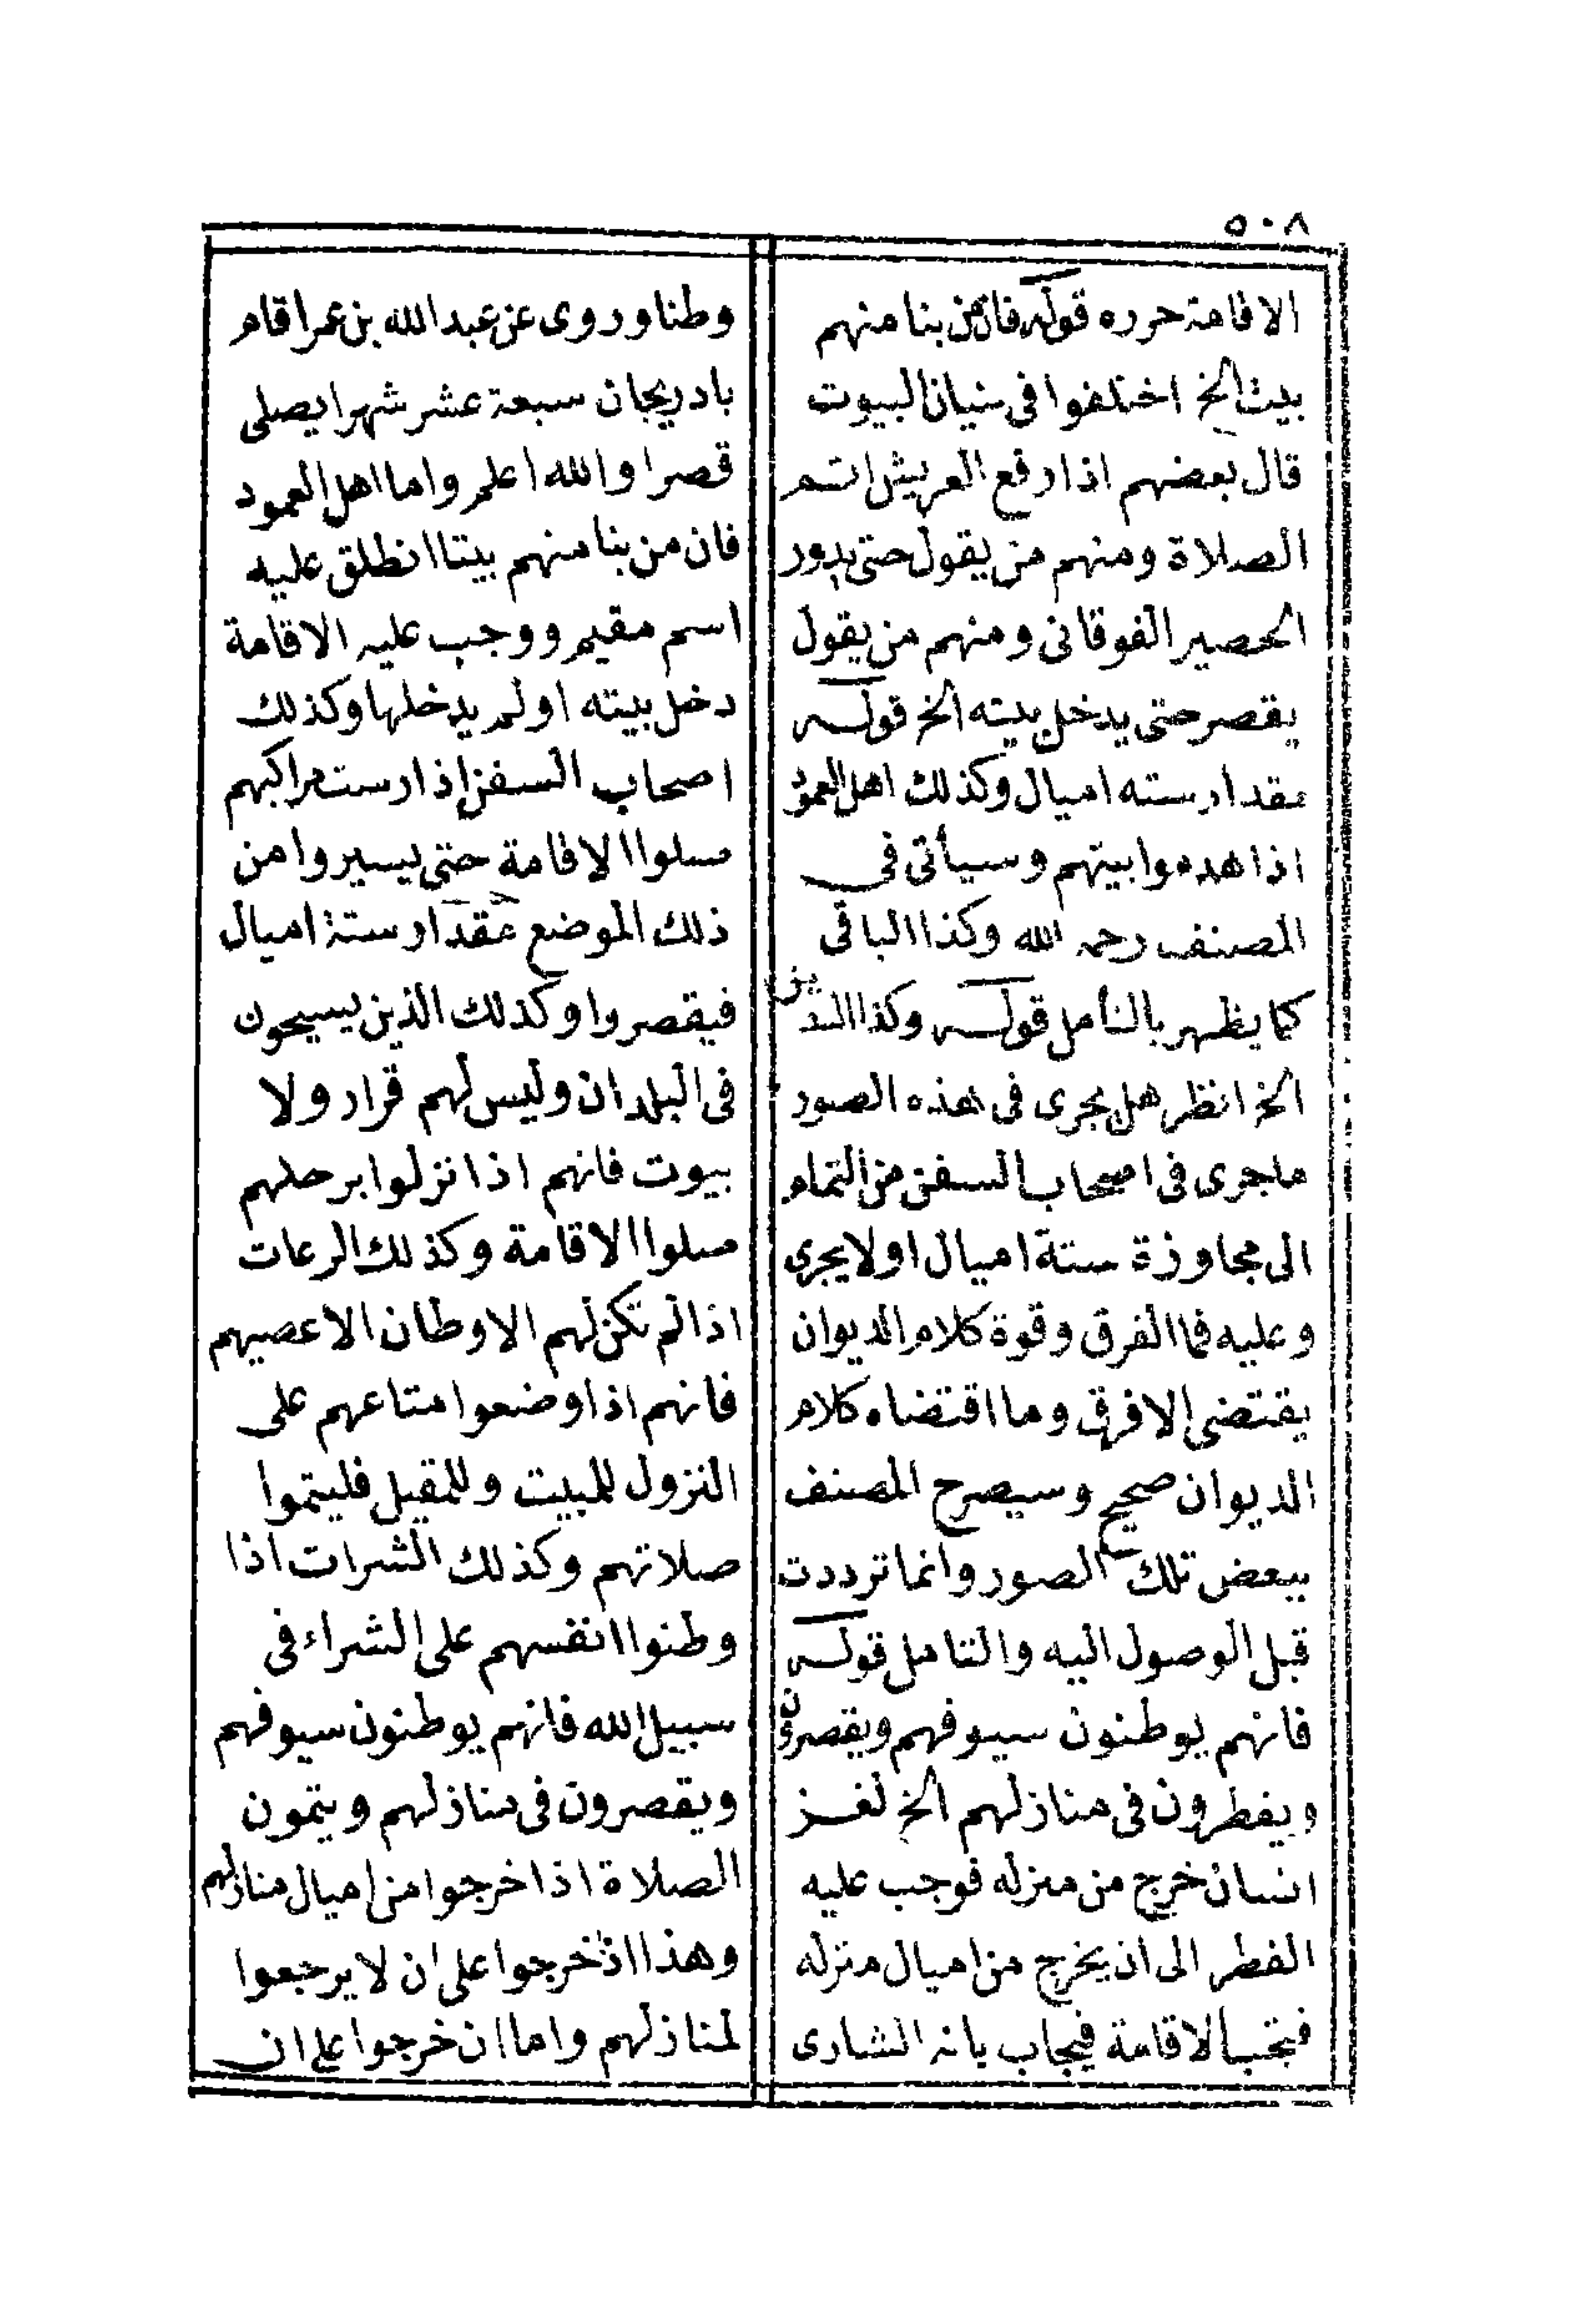 ٥٠٨
الاقامة حرره قوله فان من بنا منهم
بيت الخ اختلفوا فى بنيان البيوت
قال بعضهم اذا رفع العريش اتم
الصلاة ومنهم من يقول حتى يدور
الحصير الفوقانى ومنهم من يقول
يقصر حتى يدخل بيته الخ قوله
مقدار سته اميال وكذلك اهل العمود
اذا هدموا بيتهم وسيأتى فى
المصنف رحمه الله وكذا الباقى
كما يظهر بالتأمل قوله وكذا الذين
الخ انظر هل يجرى فى هذه الصور
ماجرى فى اصحاب السفن من التمام
الى مجاوزة ستة اميال اولا يجرى
وعليه فما الفرق وقوة كلام الديوان
يقتضى الافرق وما اقتضاه كلام
الديوان صحيح وسيصرح المصنف
ببعض تلك الصور وانما ترددت
قبل الوصول اليه والتامل قوله
فانهم يوطنون سيوفهم ويقصرون
ويفطرون فى منازلهم الخ لغز
انسان خرج من منزله فوجب عليه
الفطر الى ان يخرج من اميال منزله
فتجب الاقامة فيجاب بانه الشارى
وطنا وروى عن عبد الله بن عمر اقام
بادريجان سبعة عشر شهرا يصلى
قصرا والله اعلم واما اهل العمود
فان من بنا منهم بيتا انطلق عليه
اسم مقيم ووجب عليه الاقامة
دخل بيته اولم يدخلها وكذلك
اصحاب السفن اذا ارست مراكبهم
صلوا الاقامة حتى يسيروا من
ذلك الموضع مقدار ستة اميال
فيقصروا وكذلك الذين يسيحون
فى البلدان وليس لهم قرار ولا
بيوت فانهم اذا نزلوا برحلهم
صلوا الاقامة وكذلك الرعات
اذا لم تكن لهم الاوطان الاعصيهم
فانهم اذا وضعوا متاعهم على
النزول للمبيت وللمقيل فليتموا
صلاتهم وكذلك الشرات اذا
وطنوا انفسهم على الشراء فى
سبيل الله فانهم يوطنون سيوفهم
ويقصرون فى منازلهم ويتمون
الصلاة اذا خرجوا من اميال منازلهم
وهذا اذا خرجوا على ان لا يرجعوا
لمنازلهم واما ان خرجوا على ان